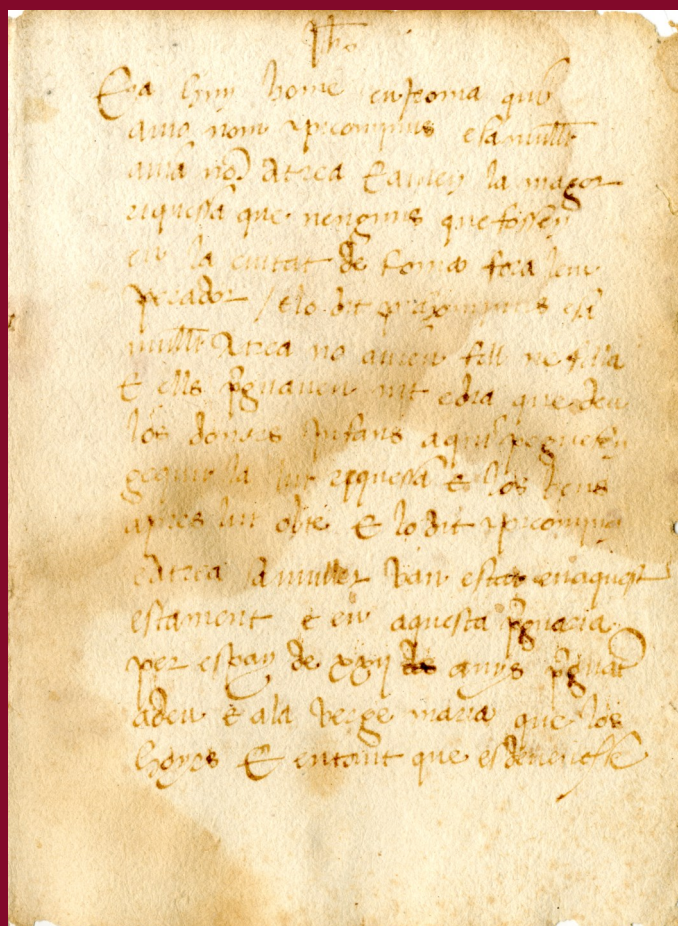 Jhs
Era huy home en roma qui
avia nom e sa mullr
avia no Atrea E avien la magor
riquessa que nenguns que fossen
en la ciutat de Roma fora lem
perador / E lo dit e sa
mullr Atrea no avien fill ne filla
E ells pgaven nit e dia que deu
los donas infans a qui poguessen
la lur riquessa E los bens
apres lur obte E lo dit
e Atrea sa muller van estar en aquest
estament E en aquesta pgaria
per espay de xxij anys
a deu E a la verge maria que los
hoyes E entant que esdevench